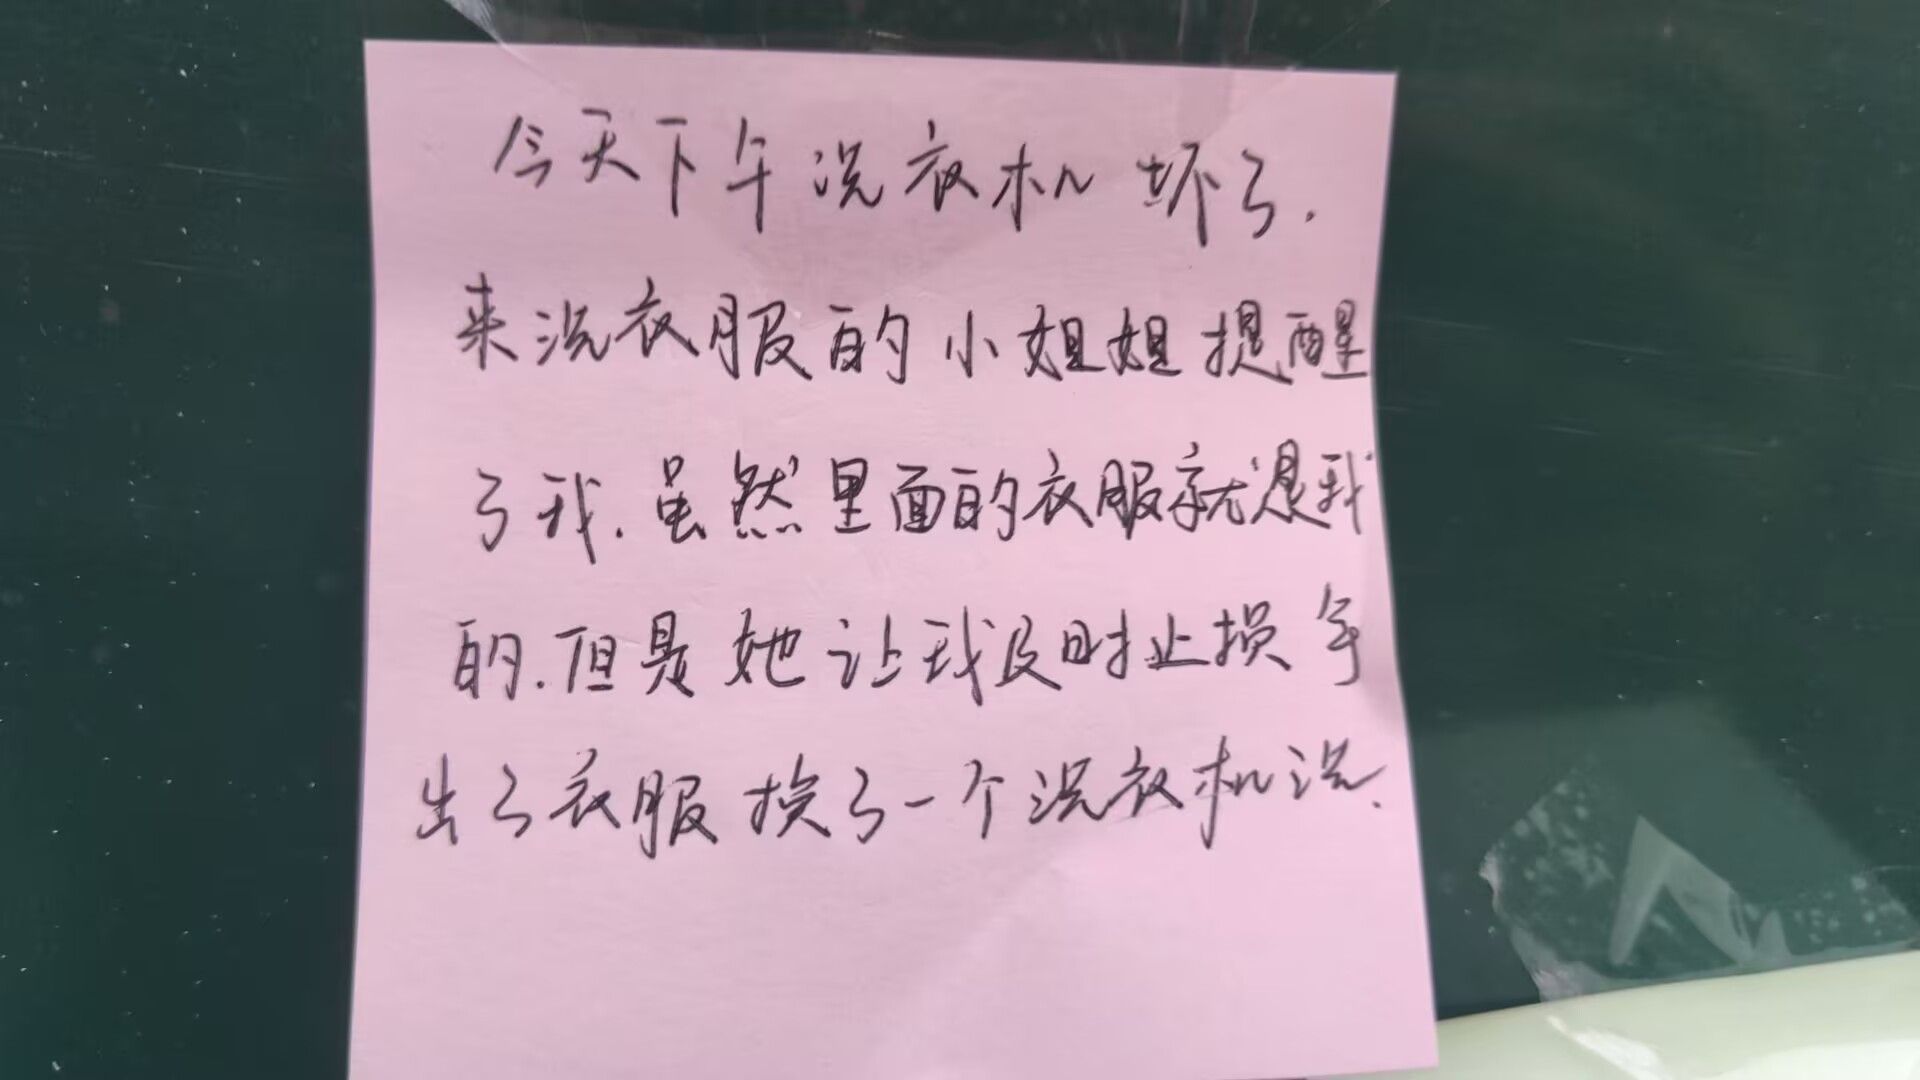 今天下午洗衣机坏了.
来洗衣服的小姐姐提醒
了我.虽然里面的衣服就是我
的.但是她让我及时止损拿
出了衣服换了一个洗衣机洗.